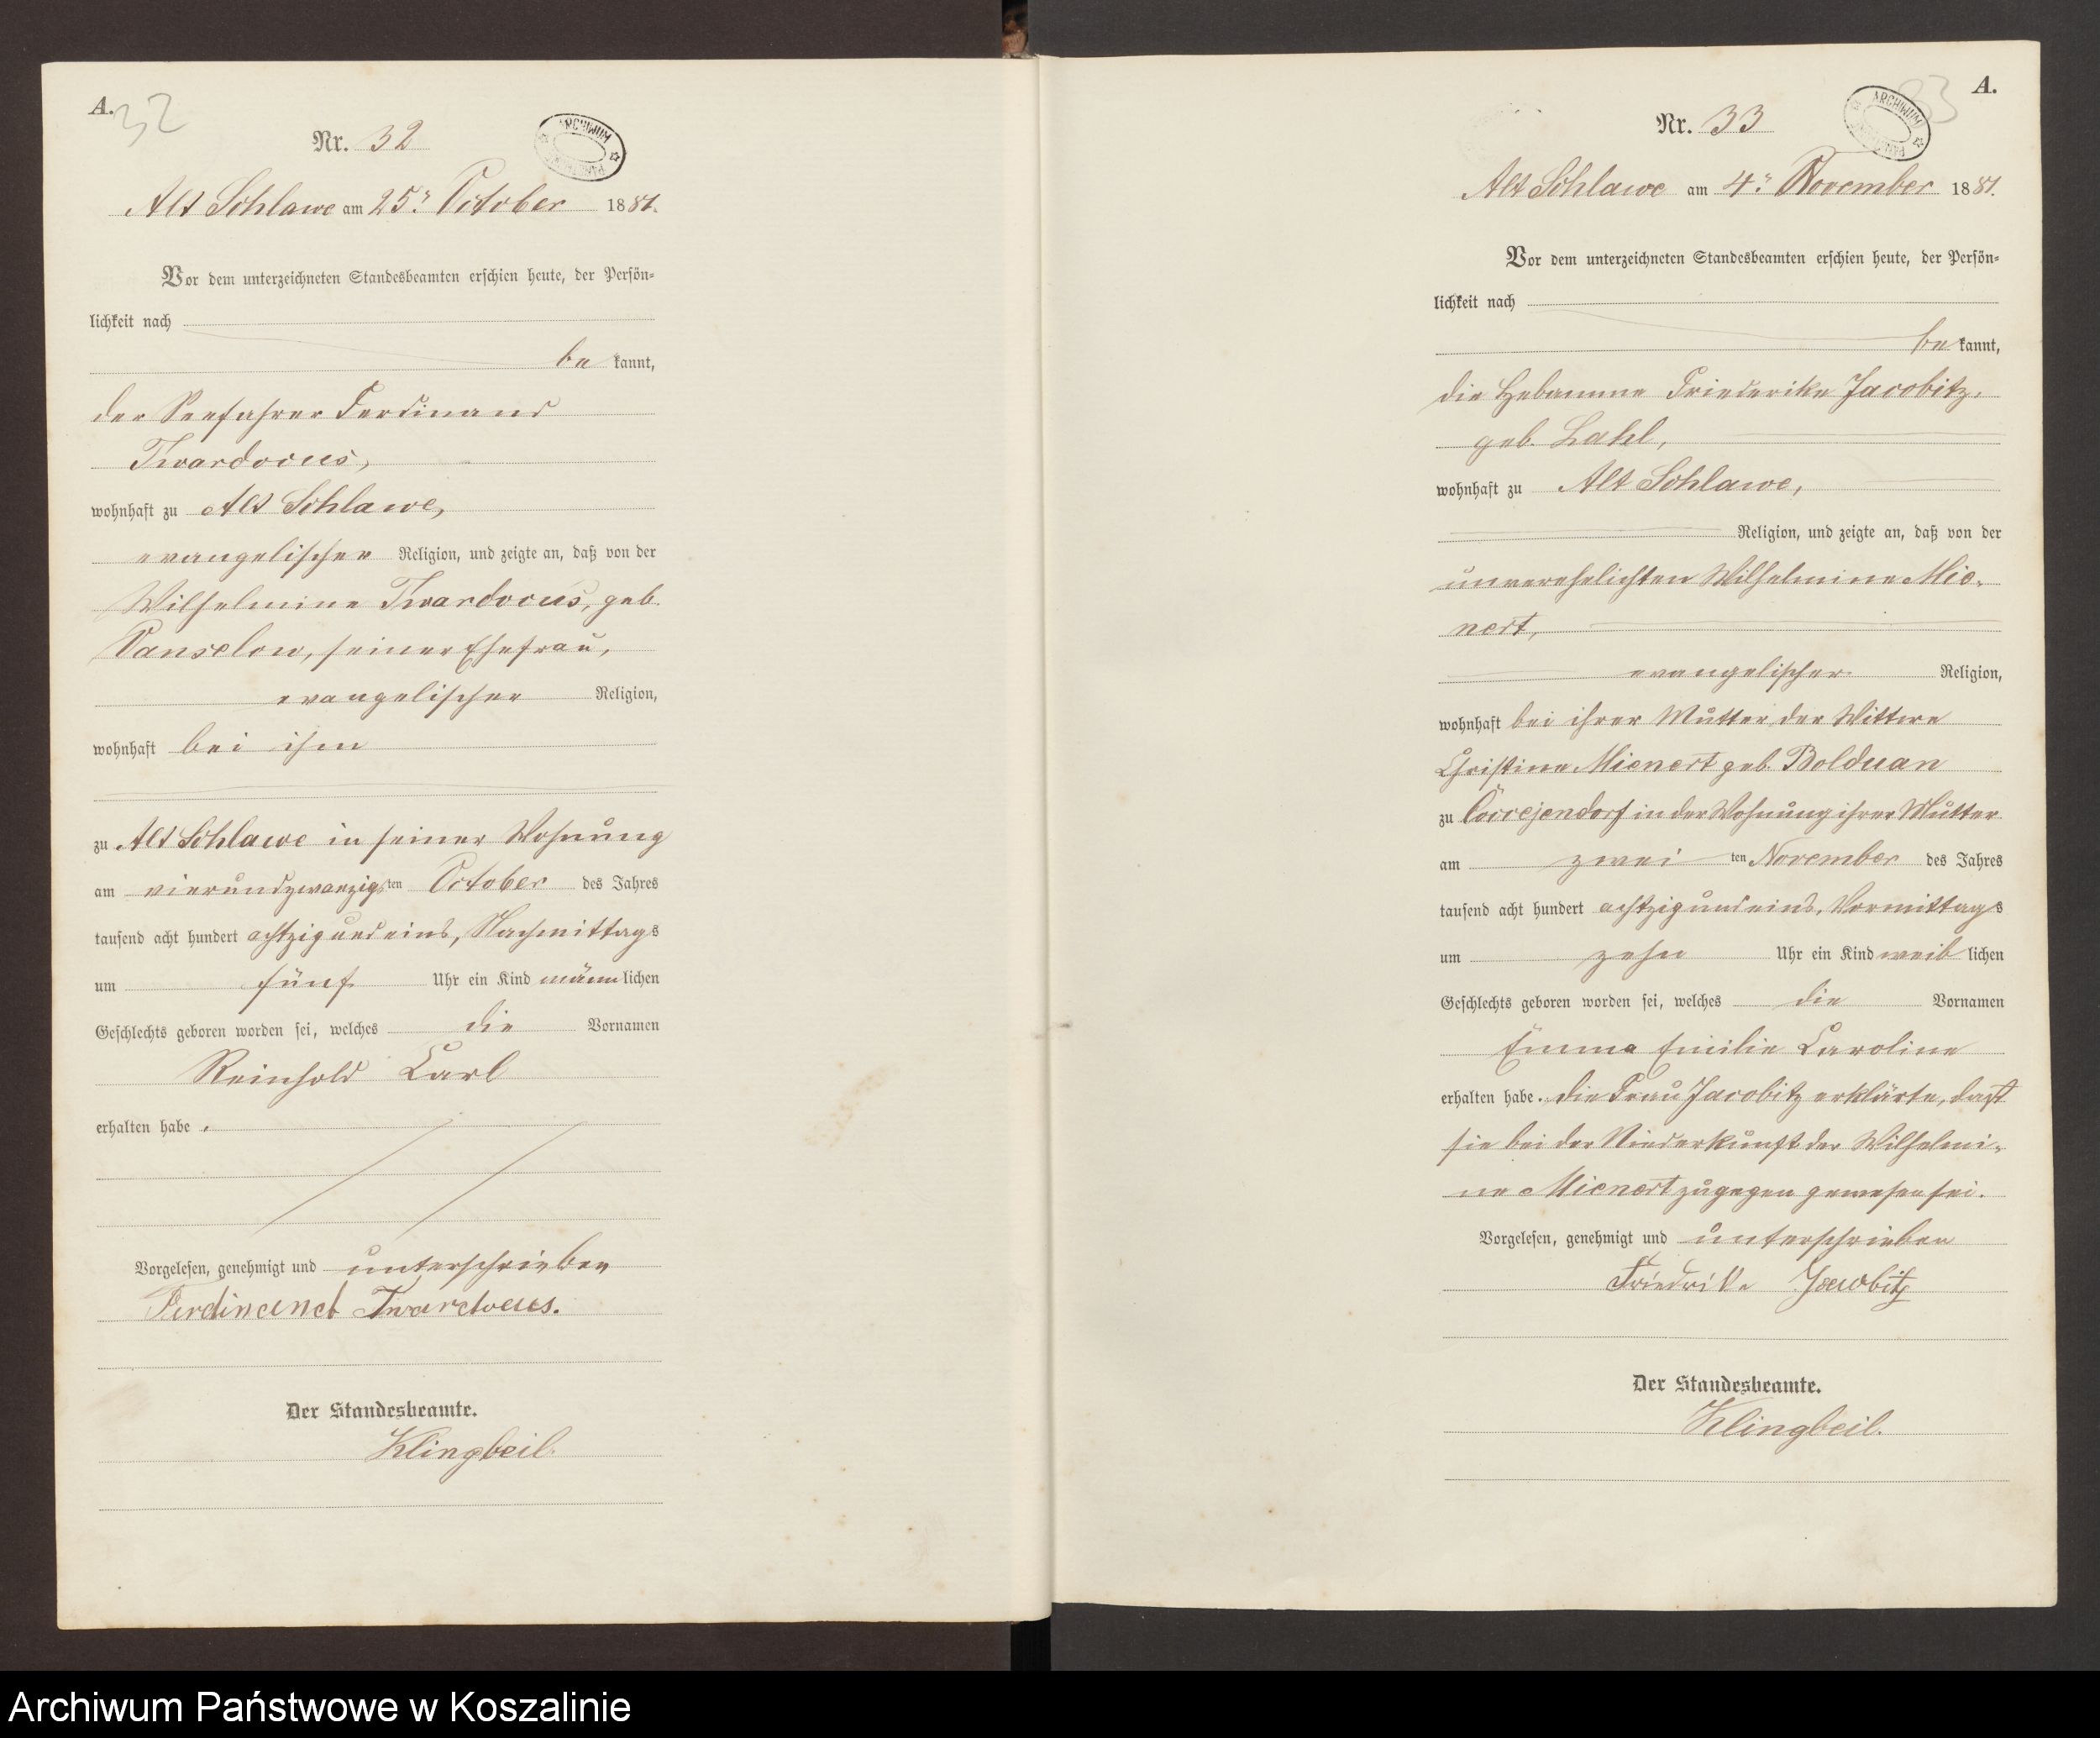 A.
32
Nr. 32
ARCHIWUM
Alt Schlawe am 25ⁿ October 1881.
Vor dem unterzeichneten Standesbeamten erschien heute, der Persön-
lichkeit nach
be kannt,
der Seefahrer Ferdinand
Twardocus,
wohnhaft zu Alt Schlawe,
evangelischer Religion, und zeigte an, daß von der
Wilhelmine Twardocus, geb.
Panselow, seiner Ehefrau,
evangelischer Religion,
wohnhaft bei ihm
zu Alt Schlawe in seiner Wohnung
am vierundzwanzigsten October des Jahres
tausend acht hundert achtzig und eins, Nachmittags
um fünf Uhr ein Kind männlichen
Geschlechts geboren worden sei, welches die Vornamen
Reinhold Carl
erhalten habe.
Vorgelesen, genehmigt und unterschrieben
Ferdinand Twardocus.
Der Standesbeamte.
Klingbeil.
A.
33
Nr. 33
ARCHIWUM
Alt Schlawe am 4ⁿ November 1881.
Vor dem unterzeichneten Standesbeamten erschien heute, der Persön-
lichkeit nach
be kannt,
die Hebamme Friederike Jacobitz,
geb. Lahl,
wohnhaft zu Alt Schlawe,
Religion, und zeigte an, daß von der
unverehelichten Wilhelmine Mie-
nert,
evangelischer Religion,
wohnhaft bei ihrer Mutter, der Wittwe
Christine Mienert geb. Bolduan
zu in der Wohnung ihrer Mutter
am zwei ten November des Jahres
tausend acht hundert achtzig und eins, Vormittags
um zehn Uhr ein Kind weib lichen
Geschlechts geboren worden sei, welches die Vornamen
Emma Emilie Caroline
erhalten habe. Die Frau Jacobitz erklärte, daß
sie bei der Niederkunft der Wilhelmi-
ne Mienert zugegen gewesen sei.
Vorgelesen, genehmigt und unterschrieben
Friedrike Jacobitz
Der Standesbeamte.
Klingbeil.
Archiwum Państwowe w Koszalinie